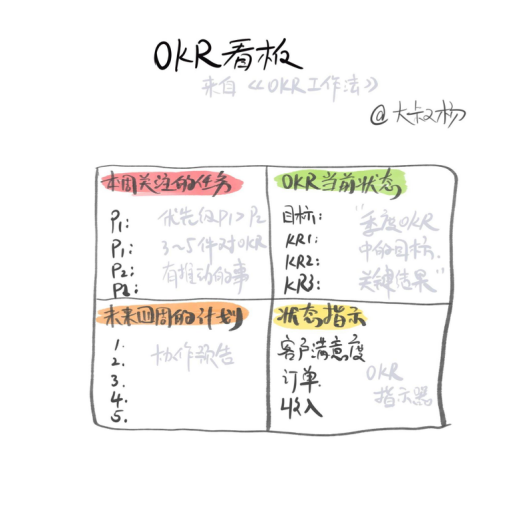 OKR看板
来自《OKR工作法》
@大叔杨
本周关注的任务
P1:
P1:
P2:
P2:
优先级P1>P2
3~5件对OKR
有推动的事
OKR当前状态
目标:
KR1:
KR2:
KR3:
"季度OKR
中的目标、
关键结果"
未来四周的计划
1.
2.
3.
4.
5.
协作预告
状态指示
客户满意度
订单
收入
OKR
指示器